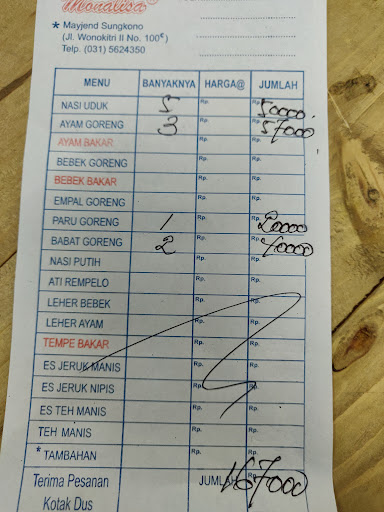 Monalisa
* Mayjend Sungkono
(Jl. Wonokitri II No. 100ᶜ)
Telp. (031) 5624350
MENU BANYAKNYA HARGA@ JUMLAH
NASI UDUK 5 Rp. Rp. 50000
AYAM GORENG 3 Rp. Rp. 57000
AYAM BAKAR Rp. Rp.
BEBEK GORENG Rp. Rp.
BEBEK BAKAR Rp. Rp.
EMPAL GORENG Rp. Rp.
PARU GORENG 1 Rp. Rp. 20000
BABAT GORENG 2 Rp. Rp. 40000
NASI PUTIH Rp. Rp.
ATI REMPELO Rp. Rp.
LEHER BEBEK Rp. Rp.
LEHER AYAM Rp. Rp.
TEMPE BAKAR Rp. Rp.
ES JERUK MANIS Rp. Rp.
ES JERUK NIPIS Rp. Rp.
ES TEH MANIS Rp. Rp.
TEH MANIS Rp. Rp.
* TAMBAHAN Rp. Rp.
Terima Pesanan JUMLAH Rp. 167000
Kotak Dus